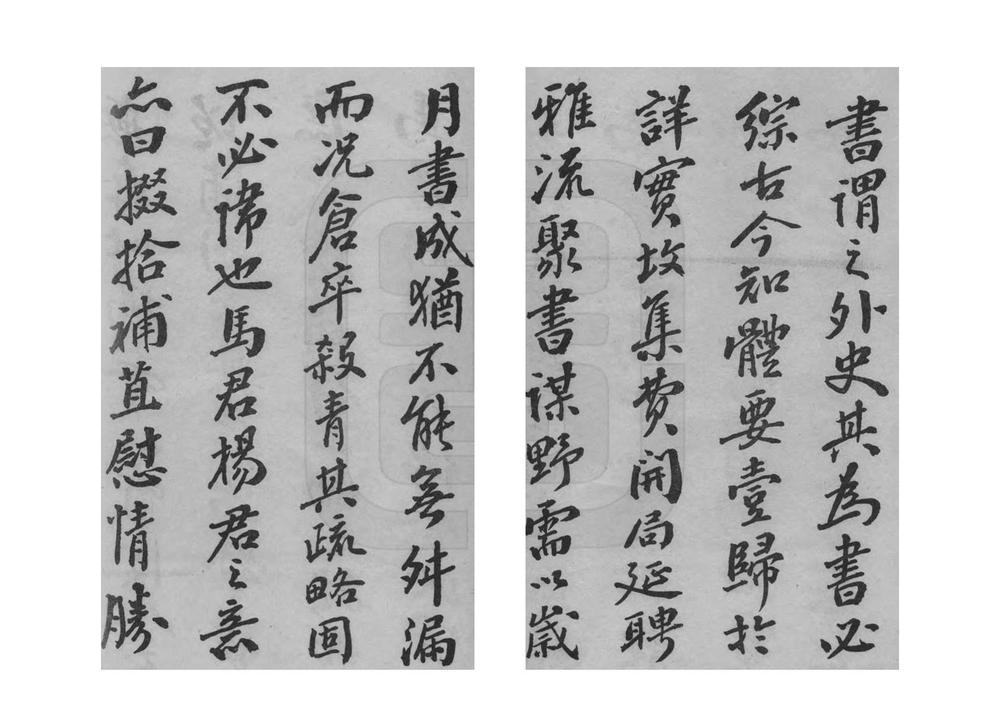 書謂之外史其為書必
綜古今知體要壹歸於
詳實故集費開局延聘
雅流聚書謀野需以歲
月書成猶不能無舛漏
而况倉卒殺青其疏略固
不必諱也馬君楊君之意
亦曰掇拾補苴慰情勝